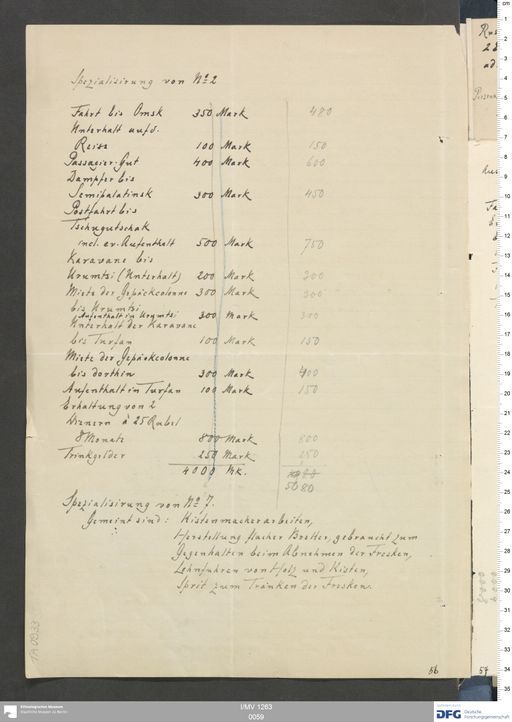 Spezialisirung von No 2
Fahrt bis Omsk 350 Mark 480
Unterhalt auf d.
Reise 100 Mark 150
Passagier-Gut 400 Mark 600
Dampfer bis
Semipalatinsk 300 Mark 450
Postfahrt bis
Tschugutschak
incl. ev. Aufenthalt 500 Mark 750
Karavane bis
Urumtsi (Unterhalt) 200 Mark 300
Miete der Gepäckcolonne 300 Mark 300
bis Urumtsi
Aufenthalt in Urumtsi 300 Mark 300
Unterhalt der Karavane
bis Turfan 100 Mark 150
Miete der Gepäckcolonne
bis dorthin 300 Mark 400
Aufenthalt in Turfan 100 Mark 150
Erhaltung von 2
Dienern à 25 Rubel
8 Monate 800 Mark 800
Trinkgelder 250 Mark 250
4000 Mk.
5080
Spezialisirung von No 7.
Gemeint sind: Kistenmacherarbeiten,
Herstellung flacher Bretter, gebraucht zum
Gegenhalten beim Abnehmen der Fresken,
Lehnfuhren von Holz und Kisten,
Sprit zum Tränken der Fresken.
TA 0933
56
57
8000
6000
Ethnologisches Museum
Staatliche Museen zu Berlin
I/MV 1263
0059
DFG Deutsche
Forschungsgemeinschaft